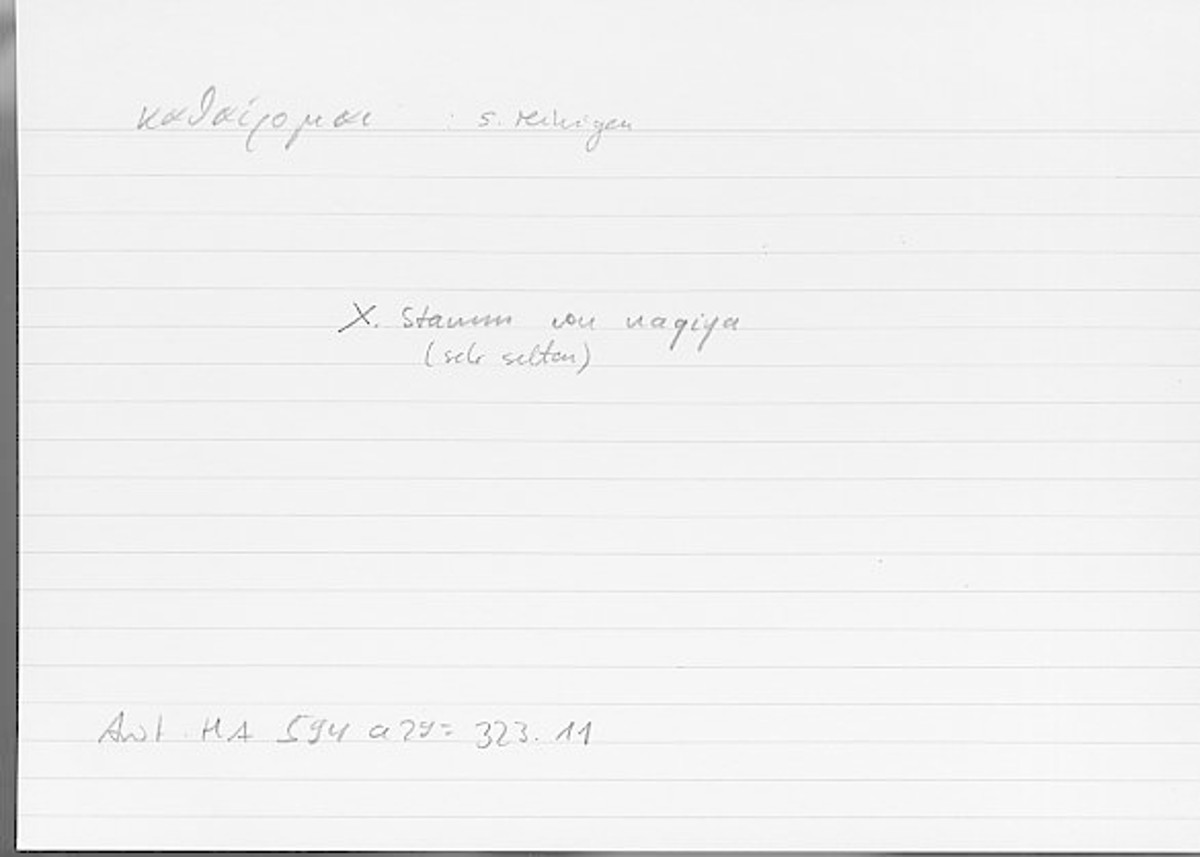 καθαίρομαι : s. reinigen
X. Stamm von naqiya
(sehr selten)
Arist. HA 594 a 29 = 323.11